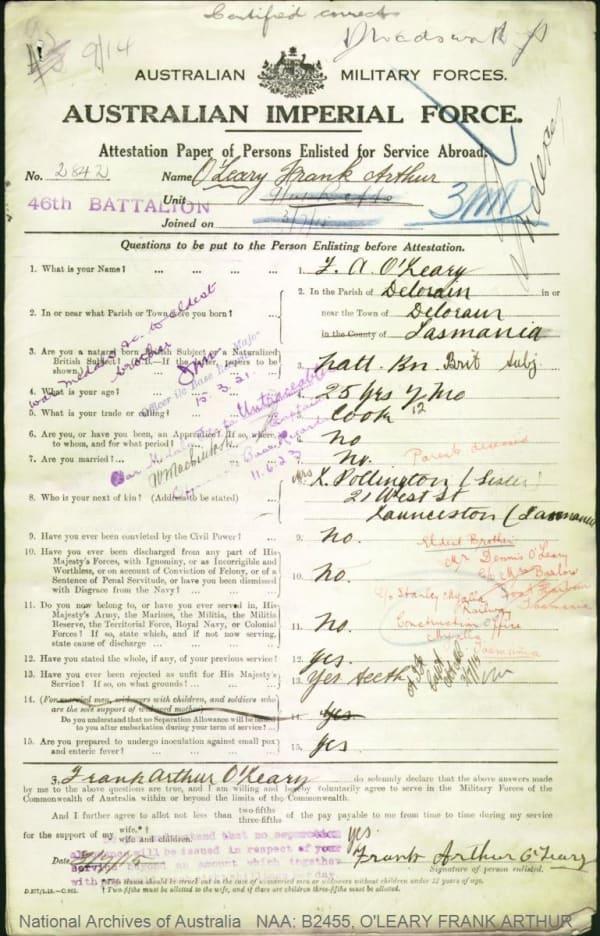 Certified correct
9/14
AUSTRALIAN MILITARY FORCES.
AUSTRALIAN IMPERIAL FORCE.
Attestation Paper of Persons Enlisted for Service Abroad.
No. 2842 Name O'Leary Frank Arthur
Unit
46TH BATTALION
Joined on
3 MD
Questions to be put to the Person Enlisting before Attestation.
1. What is your Name? ... ... ... ... 1. F. A. O'Leary
2. In or near what Parish or Town were you born? ... 2. In the Parish of Delorain in or
near the Town of Delorain
in the County of Tasmania
3. Are you a natural born British Subject or a Naturalized
British Subject? (N.B.—If the latter, papers to be
shown.) 3. Natl. Bn Brit Subj.
4. What is your age? 4. 25 yrs 7 mo
5. What is your trade or calling? 5. Cook 12
6. Are you, or have you been, an Apprentice? If so, where,
to whom, and for what period? 6. no
7. Are you married? ... 7. no. Parents deceased
8. Who is your next of kin? (Address to be stated) ... Mrs Pollington (Sister)
21 West St
Launceston (Tasmania
9. Have you ever been convicted by the Civil Power? ... 9. no.
10. Have you ever been discharged from any part of His
Majesty's Forces, with Ignominy, or as Incorrigible and
Worthless, or on account of Conviction of Felony, or of a
Sentence of Penal Servitude, or have you been dismissed
with Disgrace from the Navy? ... 10. no.
11. Do you now belong to, or have you ever served in, His
Majesty's Army, the Marines, the Militia, the Militia
Reserve, the Territorial Force, Royal Navy, or Colonial
Forces? If so, state which, and if not now serving,
state cause of discharge ... ... ... 11. no
12. Have you stated the whole, if any, of your previous service? 12. yes.
13. Have you ever been rejected as unfit for His Majesty's
Service? If so, on what grounds? ... ... 13. Yes teeth
14. (For married men, widowers with children, and soldiers who
are the sole support of widowed mother)
Do you understand that no Separation Allowance will be issued
to you after embarkation during your term of service? ... 14. yes
15. Are you prepared to undergo inoculation against small pox
and enteric fever? ... 15. yes
Eldest Brother
Mr Dennis O'Leary
C/o Mrs Barlow
Tasmania
C/o Stanley Myalla
Railway
Construction Office
Myalla
Tasmania
war medals &c. to eldest
brother
15.3.21.
Untraceable
Base Records
11.6.23
I, Frank Arthur O'Leary do solemnly declare that the above answers made
by me to the above questions are true, and I am willing and hereby voluntarily agree to serve in the Military Forces of the
Commonwealth of Australia within or beyond the limits of the Commonwealth.
And I further agree to allot not less than two-fifths three-fifths of the pay payable to me from time to time during my service
for the support of my wife.*† wife and children. yes.
Date
Frank Arthur O'Leary
Signature of person enlisted.
* This clause should be struck out in the case of unmarried men or widowers without children under 18 years of age.
† Two-fifths must be allotted to the wife, and if there are children three-fifths must be allotted.
National Archives of Australia NAA: B2455, O'LEARY FRANK ARTHUR